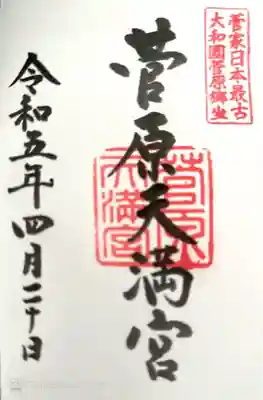 菅家日本最古
大和國菅原鄕坐
菅原天満宮
菅原
天満宮
令和五年四月二十日